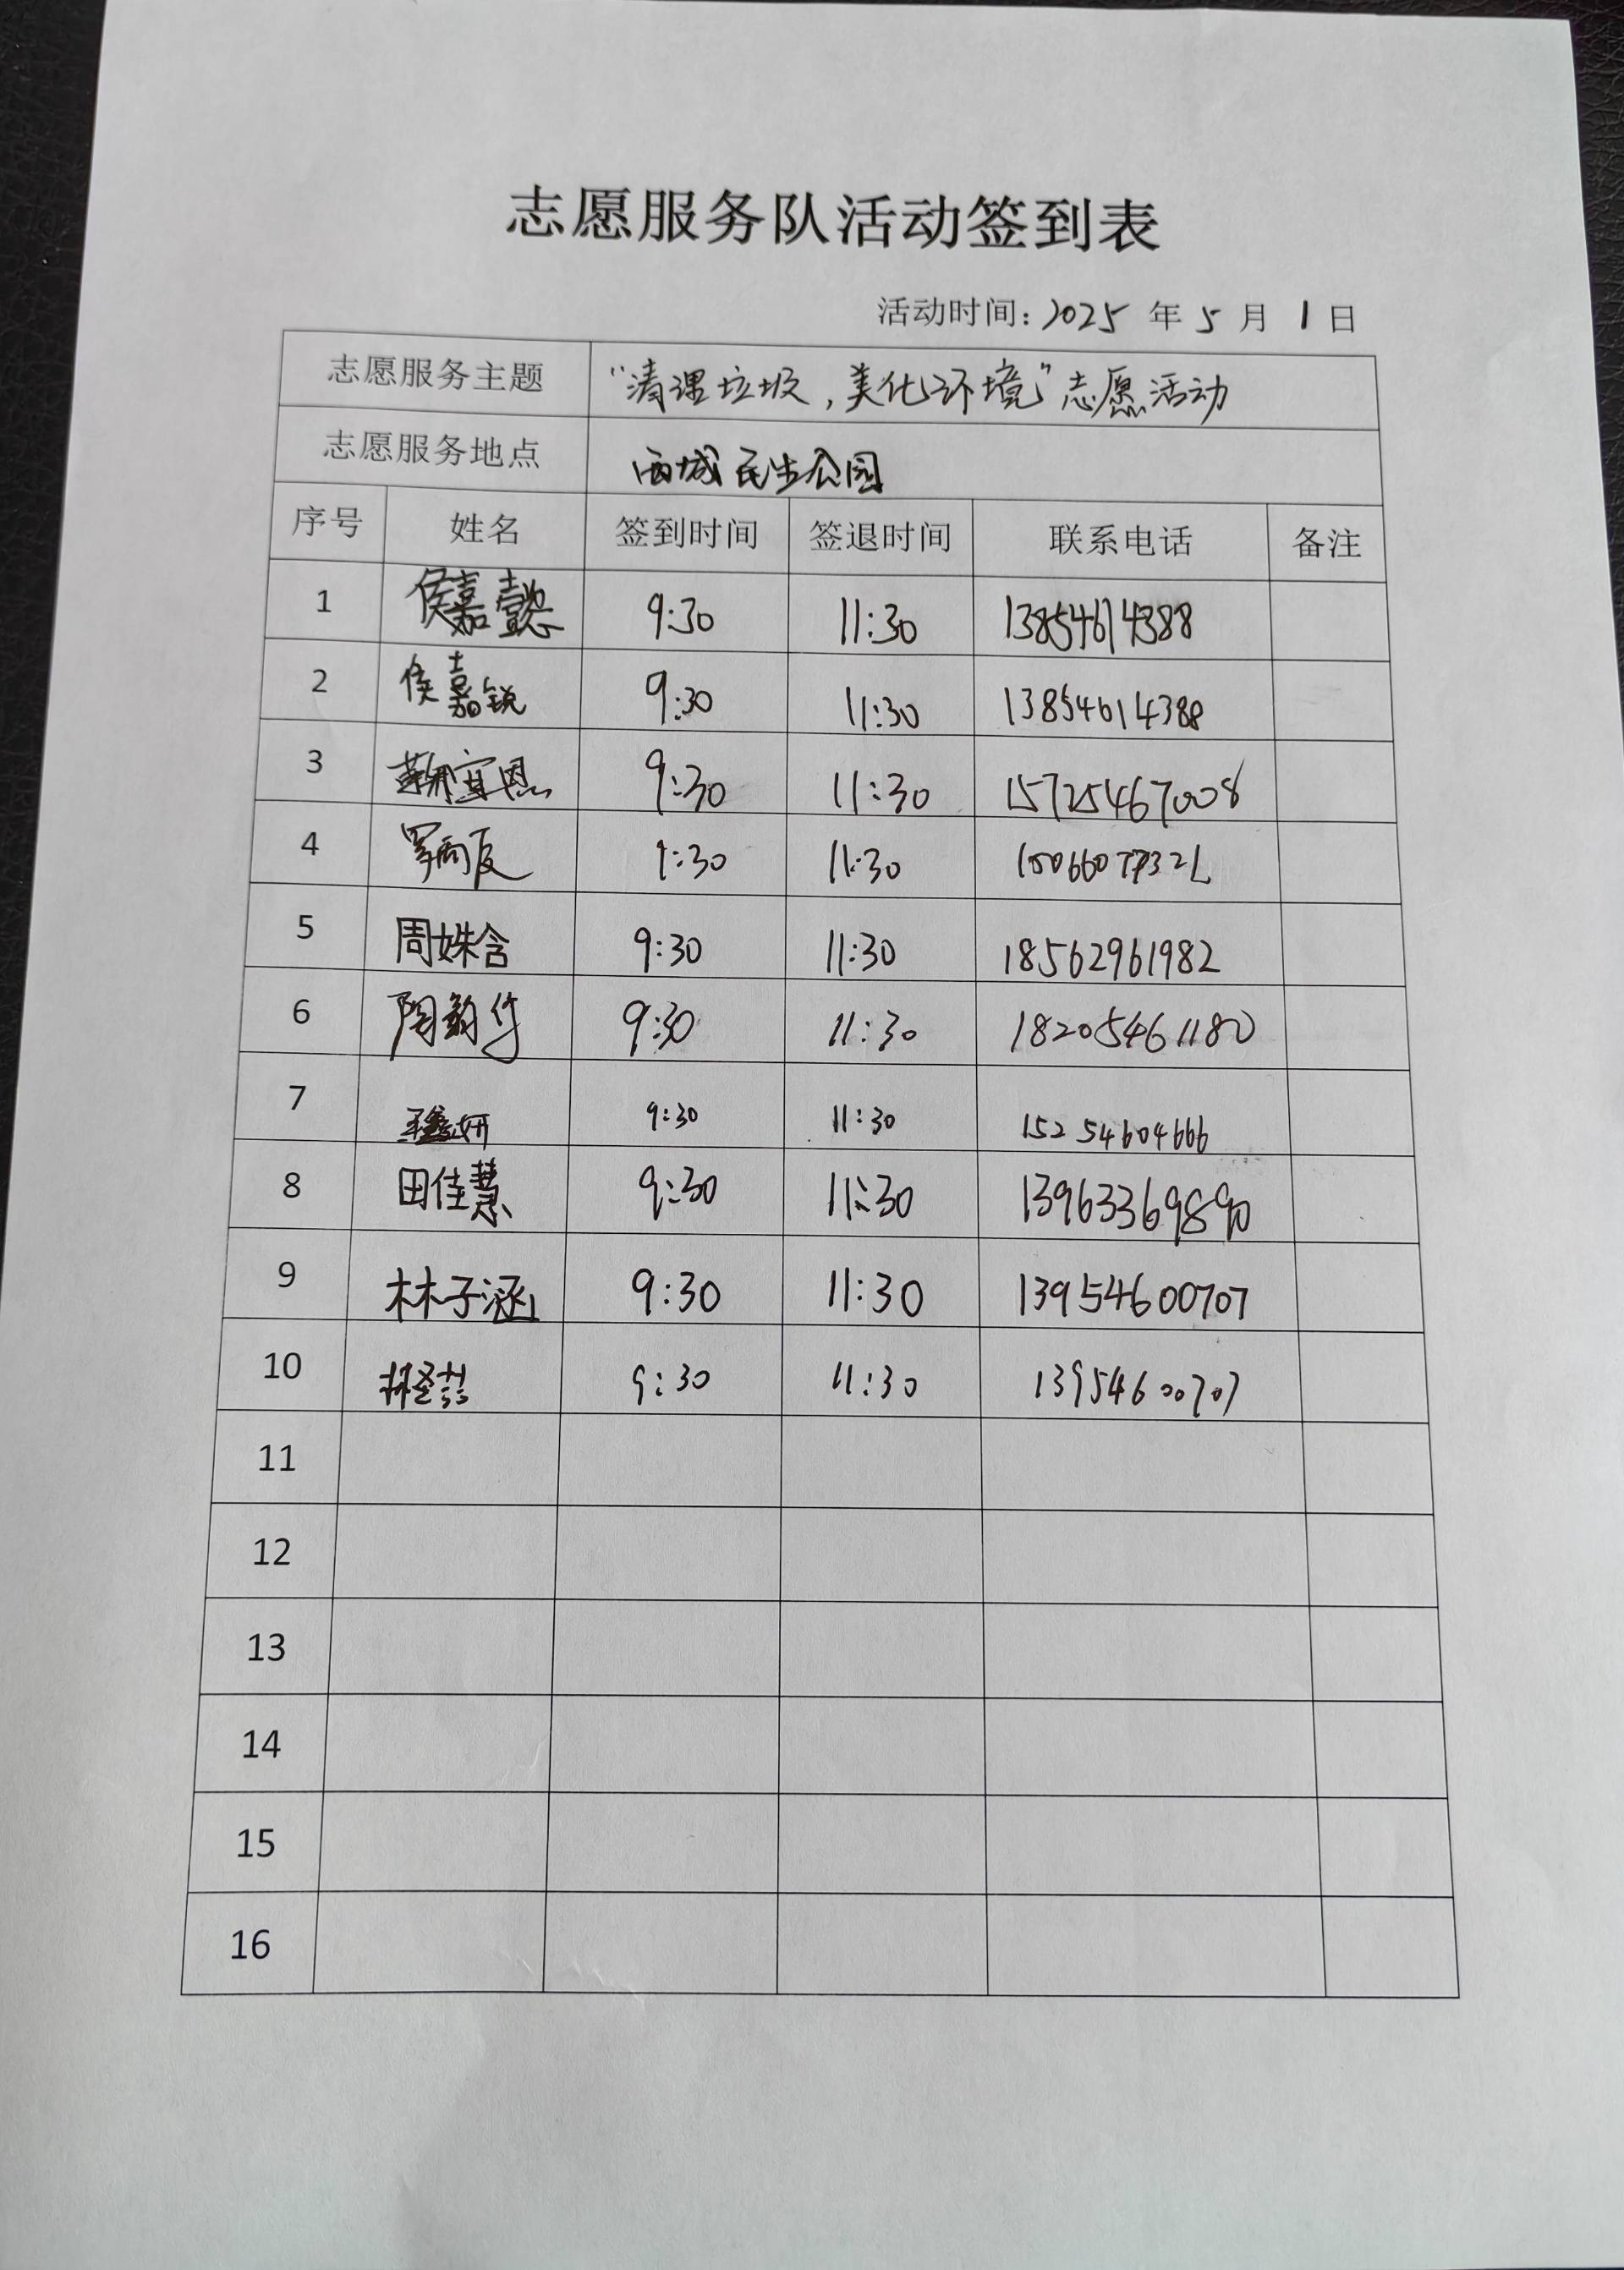 志愿服务队活动签到表
活动时间：2025 年 5 月 1 日
志愿服务主题 “清理垃圾，美化环境”志愿活动
志愿服务地点 西城民生公园
序号 姓名 签到时间 签退时间 联系电话 备注
1 侯嘉懿 9:30 11:30 13854614388
2 侯嘉锐 9:30 11:30 13854614388
3 9:30 11:30 15725467008
4 9:30 11:30
5 周姝含 9:30 11:30 18562961982
6 陶韵伊 9:30 11:30 18205461180
7 9:30 11:30 15254604666
8 田佳慧 9:30 11:30 13963369890
9 林子涵 9:30 11:30 13954600707
10 9:30 11:30 13954600707
11
12
13
14
15
16